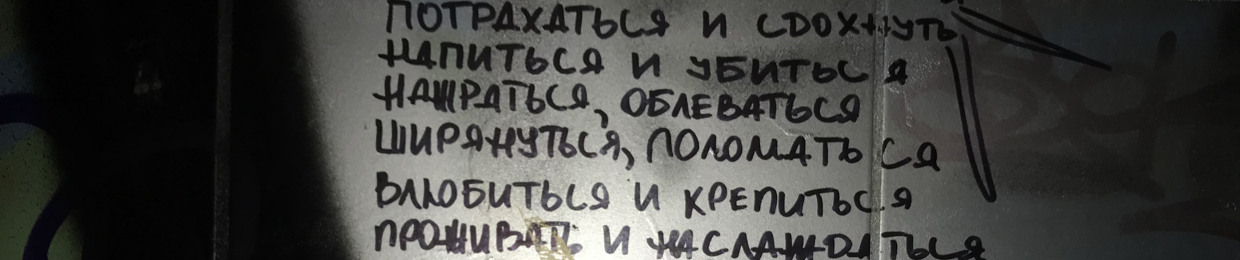 ПОТРАХАТЬСЯ И СДОХНУТЬ
НАПИТЬСЯ И УБИТЬСЯ
НАЖРАТЬСЯ, ОБЛЕВАТЬСЯ
ШИРЯНУТЬСЯ, ПОЛОМАТЬСЯ
ВЛЮБИТЬСЯ И КРЕПИТЬСЯ
ПРОЖИВАТЬ И НАСЛАЖДАТЬСЯ